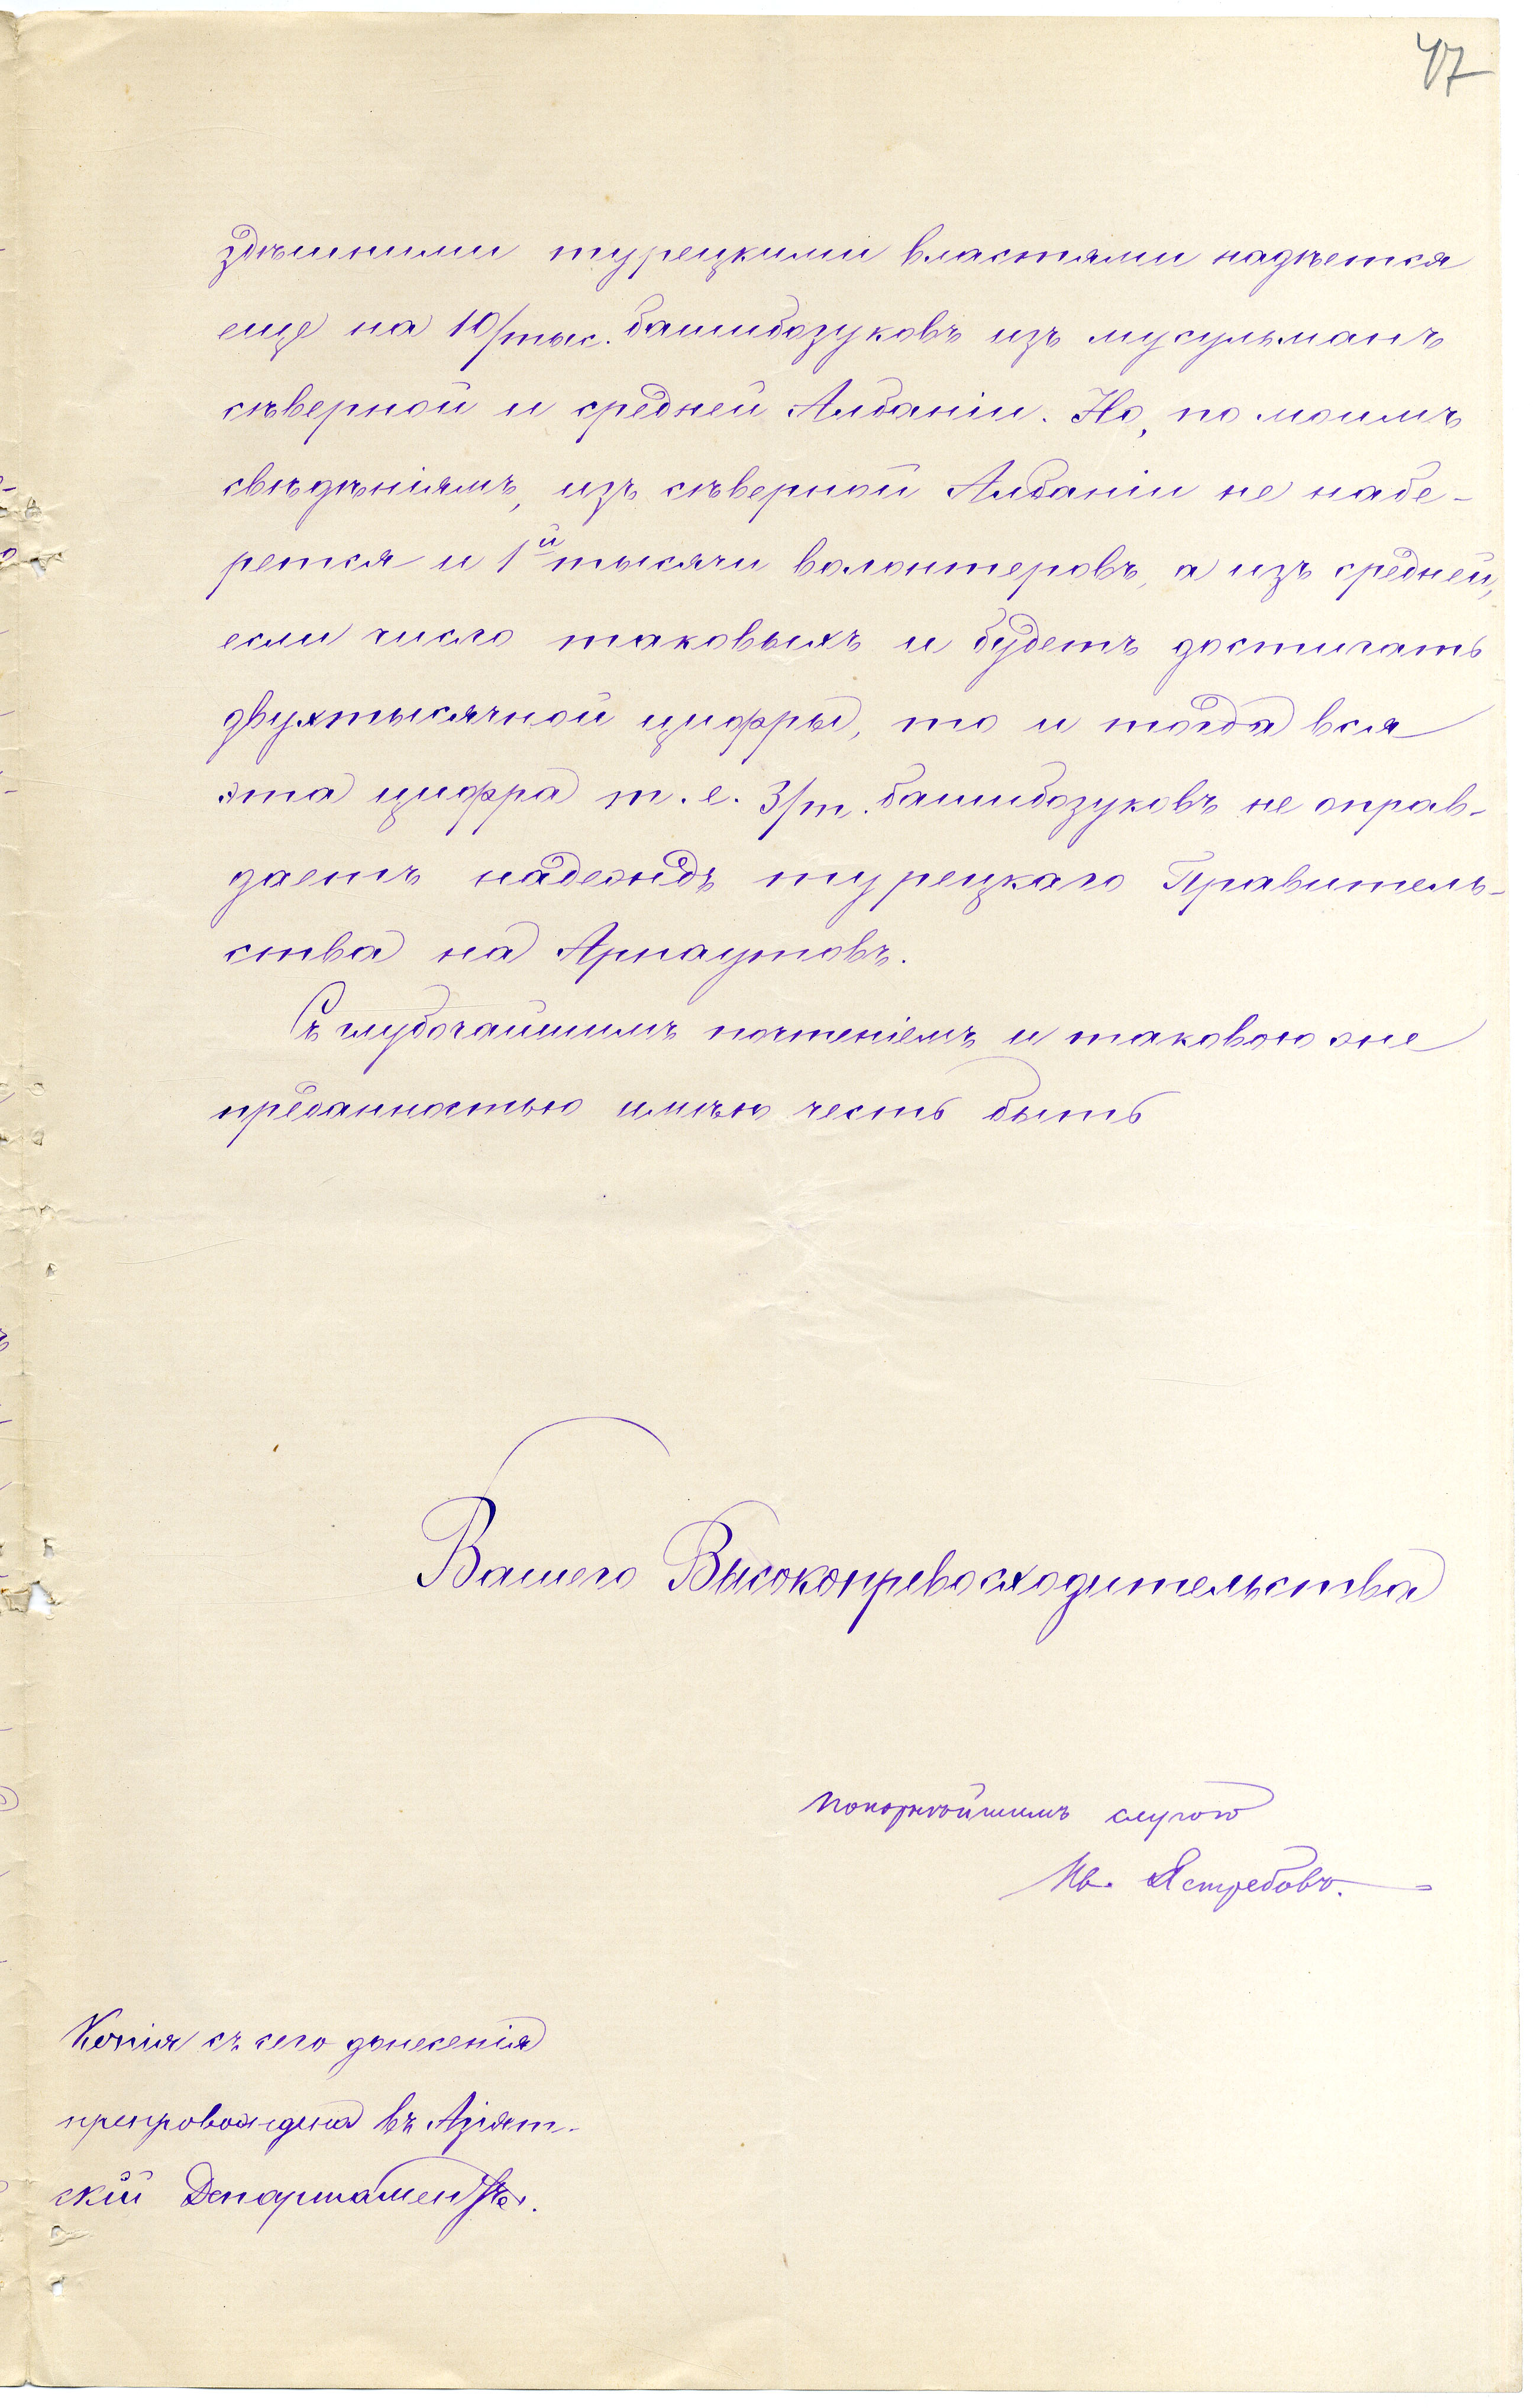 47
здѣшними турецкими властями надѣется
еще на 10/тыс. башибозуковъ изъ мусульманъ
сѣверной и средней Албаніи. Но, по моимъ
свѣдѣніямъ, изъ сѣверной Албаніи не набе-
рется и 1й тысячи волонтеровъ, а изъ средней,
если число таковыхъ и будетъ достигать
двухтысячной цифры, то и тогда вся
эта цифра т. е. 3/т. башибозуковъ не оправ-
даетъ надеждъ турецкаго Правитель-
ства на Арнаутовъ.
Съ глубочайшимъ почтеніемъ и таковою же
преданностью имѣю честь быть
Вашего Высокопревосходительства
покорнѣйшимъ слугою
Ив. Ястребовъ.
Копія съ сего донесенія
препровождена въ Азіят-
скій Департаментъ.